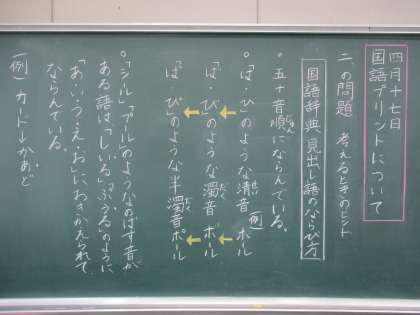 四月十七日
国語プリントについて
二、の問題 考えるときのヒント
国語辞典 見出し語のならび方
。五十音順にならんでいる。
じゅん
。「は・ひ」のような清音 (例) ホール
せい
「ば・び」のような濁音 ボール
だく
「ぱ・ぴ」のような半濁音 ポール
だく
。「シール」「プール」のようなのばす音が
ある語は「しいる」「ぷうる」のように
「あ・い・う・え・お」におきかえられて
ならんでいる。
(例) カード→かあど